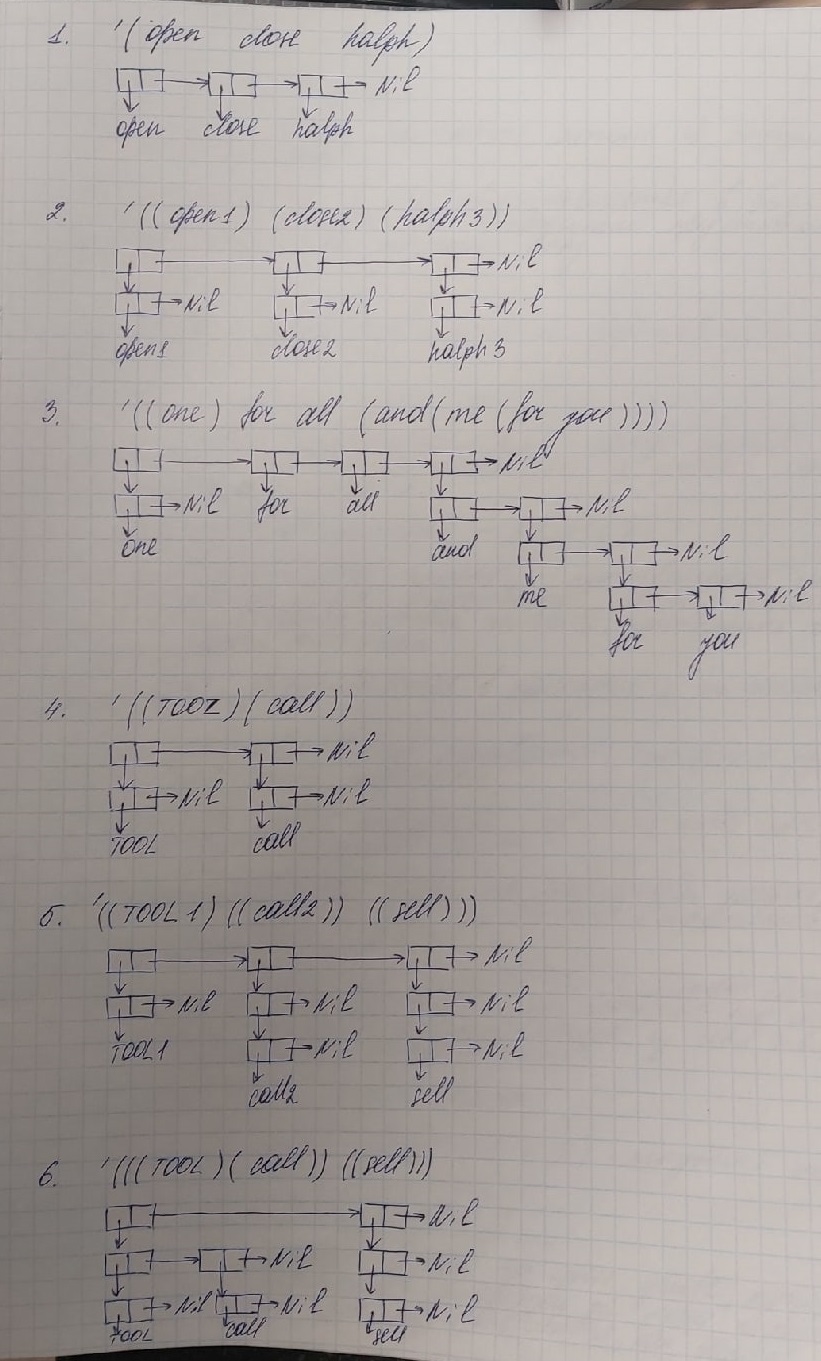 1. '(open close halph)
Nil
open close halph
2. '((open1) (close2) (halph3))
Nil
Nil Nil Nil
open1 close2 halph3
3. '((one) for all (and(me (for you))))
Nil
Nil for all Nil
one and Nil
me Nil
for you
4. '((TOOL)(call))
Nil
Nil Nil
TOOL call
5. '((TOOL1) ((call2)) ((sell)))
Nil
Nil Nil Nil
TOOL1 Nil Nil
call2 sell
6. '(((TOOL)(call)) ((sell)))
Nil
Nil Nil
Nil Nil Nil
TOOL call sell